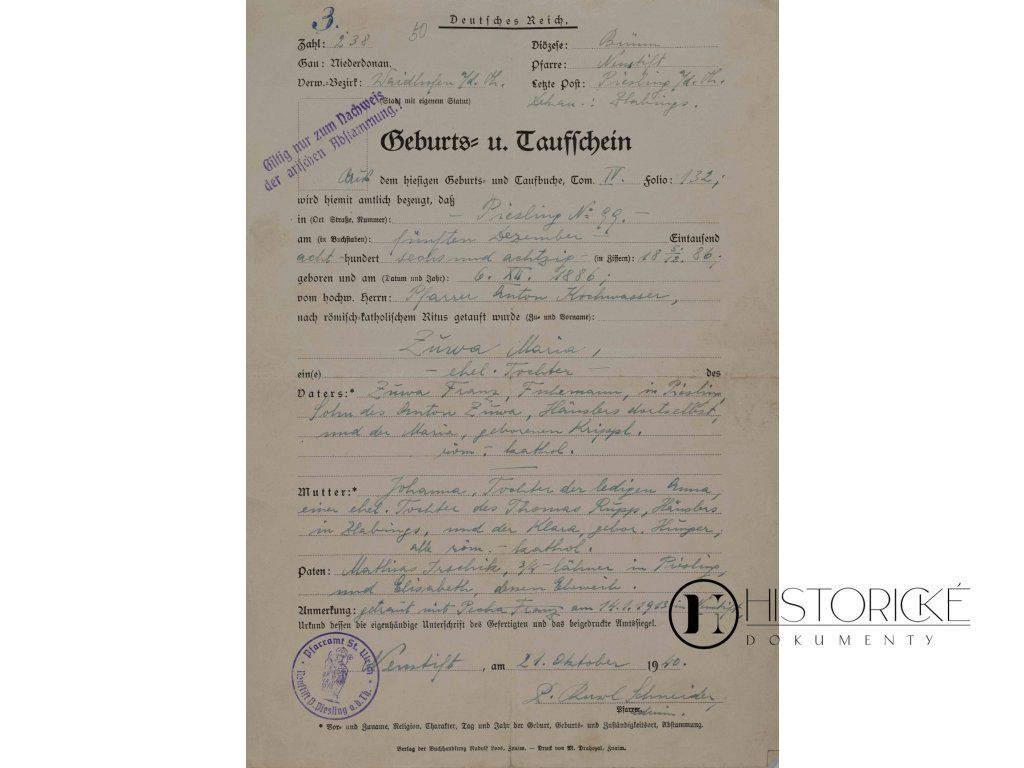 3.
Deutsches Reich.
50
Zahl: 238
Diözese: Brünn
Gau: Niederdonau.
Pfarre: Neustift
Verw.-Bezirk: Waidhofen a/d. Th.
Letzte Post: Piesling a/d. Th.
(Stadt mit eigenem Statut)
Dekan.: Zlabings.
Giltig nur zum Nachweis
der arischen Abstammung.!
Geburts- u. Taufschein
Aus dem hiesigen Geburts- und Taufbuche, Tom. IV. Folio: 132,
wird hiemit amtlich bezeugt, daß
in (Ort Straße, Nummer): – Piesling No 99. –
am (in Buchstaben): fünften Dezember – Eintausend
acht -hundert sechs und achtzig – (in Ziffern): 18 5./12. 86;
geboren und am (Datum und Jahr): 6. XII. 1886;
vom hochw. Herrn: Pfarrer Anton Kochwasser,
nach römisch-katholischem Ritus getauft wurde (Zu- und Vorname):
Zuwa Maria,
ein(e) – ehel. Tochter – des
Vaters:* Zuwa Franz, in Piesling,
Sohn des Anton Zuwa, Häuslers dortselbst,
und der Maria, geborenen Krippl.
röm. – kathol.
Mutter:* Johanna, Tochter der ledigen Anna,
einer ehel. Tochter des Thomas Rupp, Häuslers
in Zlabings, und der Klara, gebor. Hunger,
alle röm. – kathol.
Paten: Mathias Irschik, 3/4 – lähner in Piesling,
und Elisabeth, dessen Eheweib.
Anmerkung: getraut mit Pecha Franz am 14.1.1903 in Neustift
Urkund dessen die eigenhändige Unterschrift des Gefertigten und das beigedruckte Amtssiegel.
Pfarramt St. Ulrich
Neustift P. Piesling a.d. Th.
Neustift, am 21. Oktober 1940.
P. Karl Schneider,
Pfarrer
* Vor- und Zuname, Religion, Charakter, Tag und Jahr der Geburt, Geburts- und Zuständigkeitsort, Abstammung.
Verlag der Buchhandlung Rudolf Loos, Znaim. – Druck von M. Drahopal, Znaim.
HISTORICKÉ
DOKUMENTY